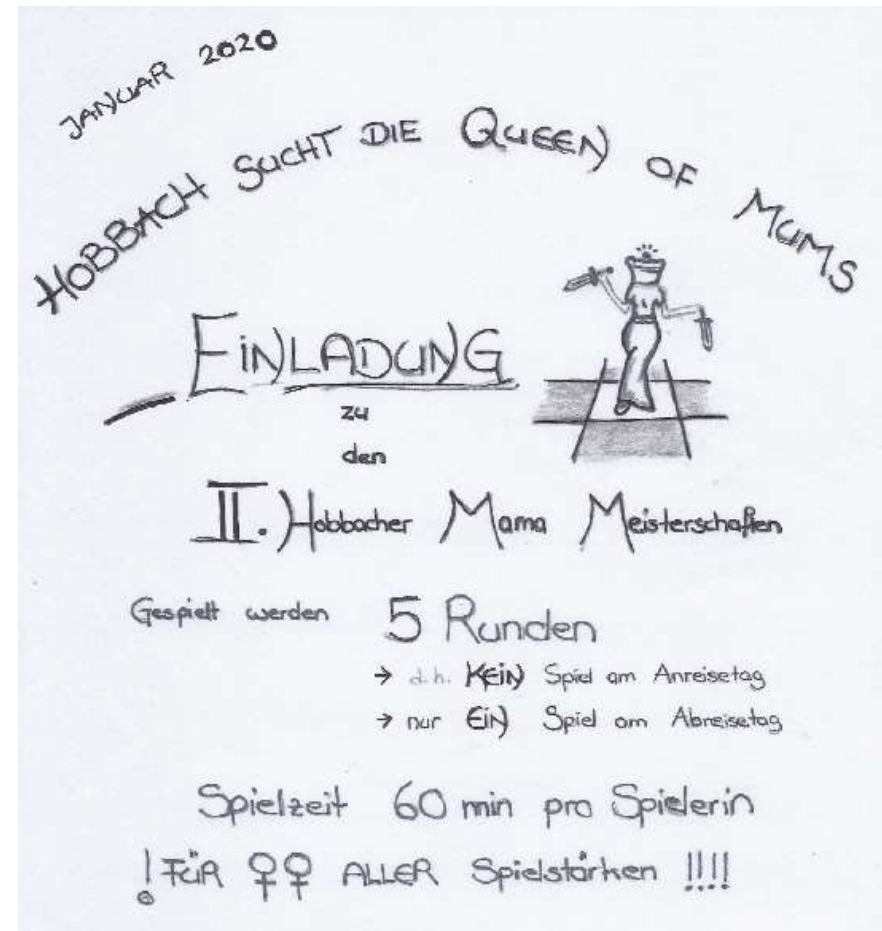 JANUAR 2020
HOBBACH SUCHT DIE QUEEN OF MUMS
EINLADUNG
zu
den
II. Hobbacher Mama Meisterschaften
Gespielt werden 5 Runden
→ d.h. KEIN Spiel am Anreisetag
→ nur EIN Spiel am Abreisetag
Spielzeit 60 min pro Spielerin
! FÜR ♀♀ ALLER Spielstärken !!!!